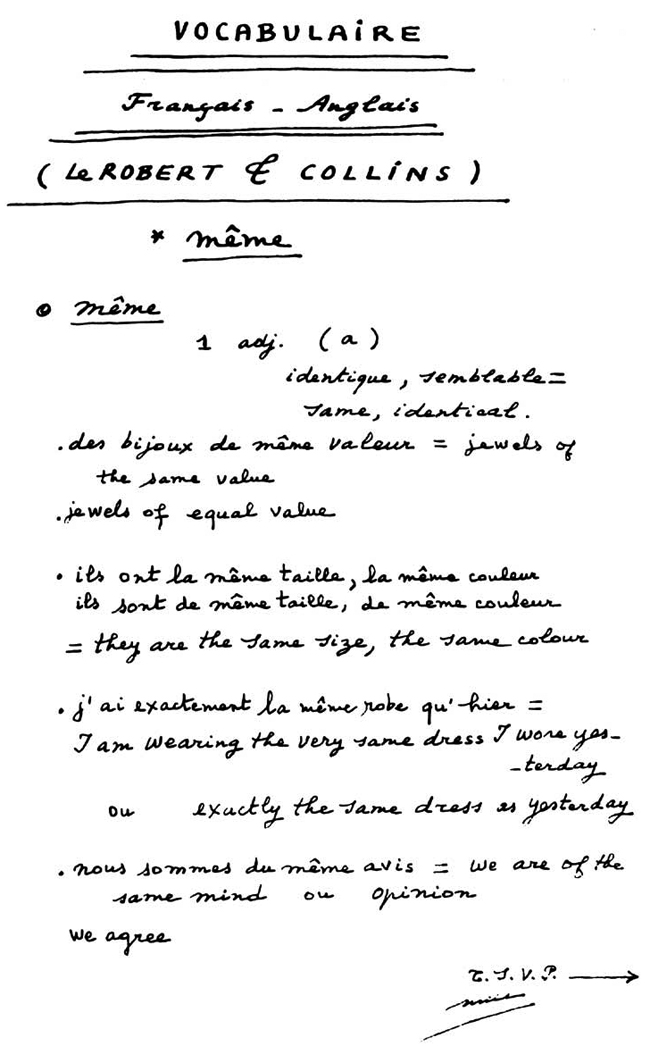 VOCABULAIRE
Français - Anglais
( Le ROBERT & COLLINS )
* même
• même
1 adj. (a)
identique, semblable =
same, identical.
. des bijoux de même valeur = jewels of
the same value
. jewels of equal value
• ils ont la même taille, la même couleur
ils sont de même taille, de même couleur
= they are the same size, the same colour
. j'ai exactement la même robe qu'hier =
I am wearing the very same dress I wore yes-
-terday
ou exactly the same dress as yesterday
. nous sommes du même avis = we are of the
same mind ou opinion
we agree
T.S.V.P. →